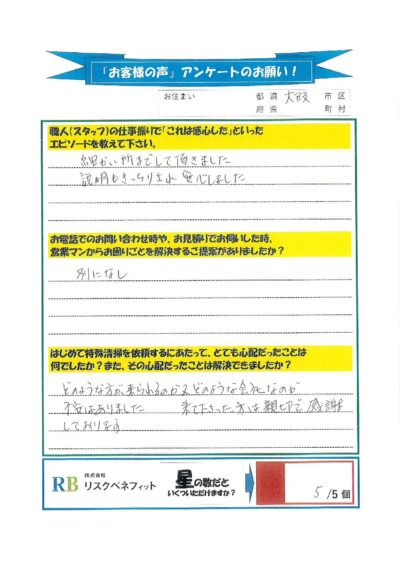 『お客様の声』アンケートのお願い！
お住まい 都道府県 大阪 市区町村
職人(スタッフ)の仕事振りで「これは感心した」といった
エピソードを教えて下さい。
細かい所までして頂きました
説明もきっちりされ 安心しました
お電話でのお問い合わせ時や、お見積りでお伺いした時、
営業マンからお困りごとを解決するご提案がありましたか？
別になし
はじめて特殊清掃を依頼するにあたって、とても心配だったことは
何でしたか？また、その心配だったことは解決できましたか？
どのような方が来られるのか又どのような会社なのか
不安はありました 来て下さった方は親切で感謝
しております
RB 株式会社 リスクベネフィット
星の数だと
いくついただけますか？
5/5個